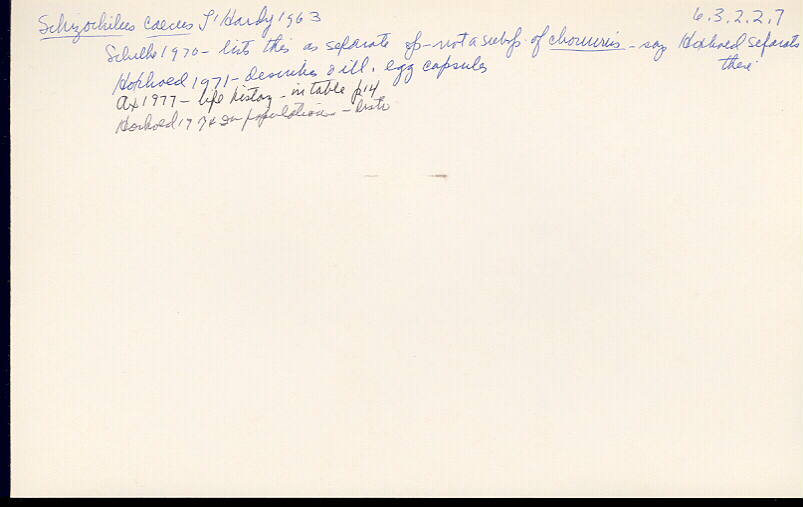 Schizochilus caecus L'Hardy 1963 6.3.2.2.7
Schilke 1970 - lists this as separate sp - not a subsp. of choriurus - say Hoxhold separates
these
Hoxhold 1971 - describes & ill. egg capsules
Ax 1977 - life history - in table p14
Hoxhold 1974 populations - lists